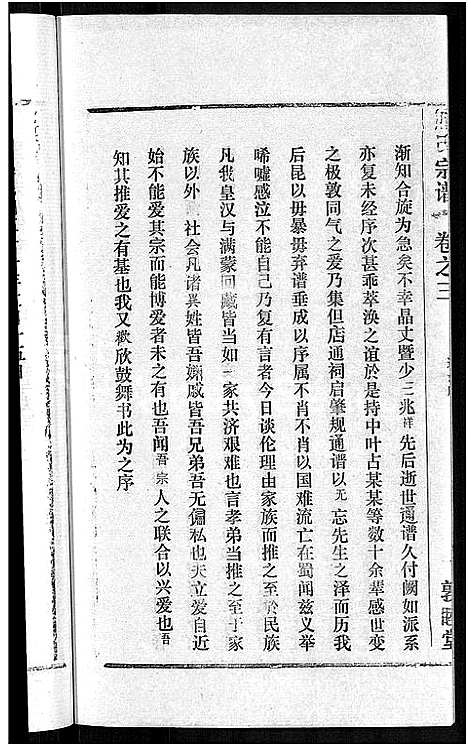 宗谱 卷之三
渐知合旋为急矣不幸晶丈暨少三兆祥先后逝世通谱久付阙如派系
亦复未经序次甚乖萃涣之谊於是持中叶占某某等数十余辈感世变
之极敦同气之爱乃集但店通祠启肇规通谱以无忘先生之泽而历我
后昆以毋暴毋弃谱垂成以序属不肖不肖以国难流亡在蜀闻兹义举
唏嘘感泣不能自己乃复有言者今日谈伦理由家族而推之至於民族
凡我皇汉与满蒙回藏皆当如一家共济艰难也言孝弟当推之至于家
族以外 社会凡诸异姓皆吾姻戚皆吾兄弟吾无偏私也夫立爱自近
始不能爱其宗而能博爱者未之有也吾闻吾宗人之联合以兴爱也吾
知其推爱之有基也我又欢欣鼓舞书此为之序
敦睦堂